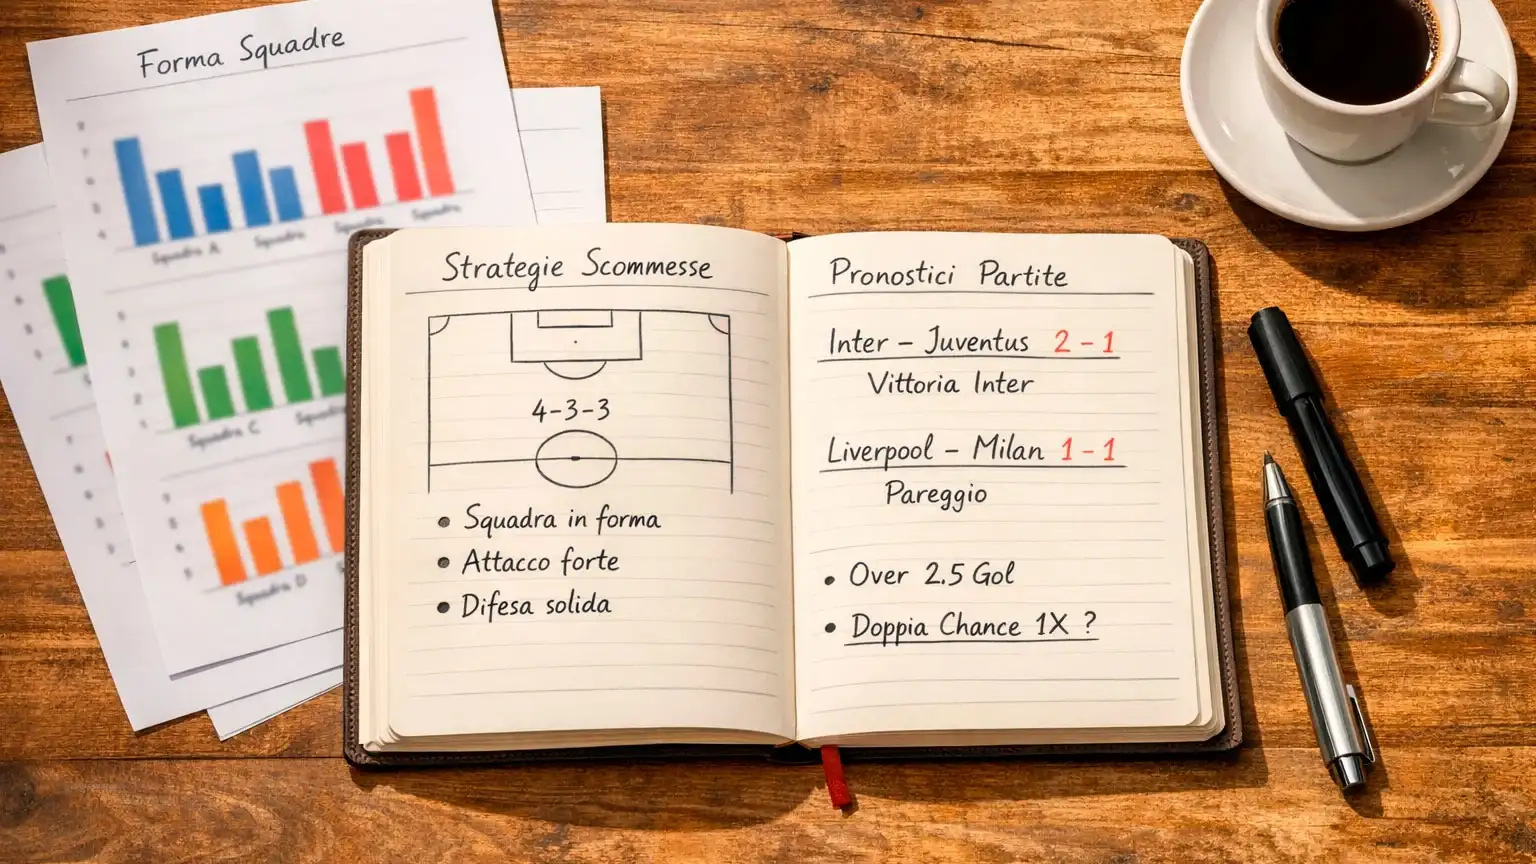 Forma Squadre
Squadra A
Squadra
Squadra
Squadra
Squadra C
Squadra D
Strategie Scommesse
4-3-3
• Squadra in forma
• Attacco forte
• Difesa solida
Pronostici Partite
Inter – Juventus 2 - 1
Vittoria Inter
Liverpool – Milan 1 - 1
Pareggio
• Over 2.5 Gol
• Doppia Chance 1X ?